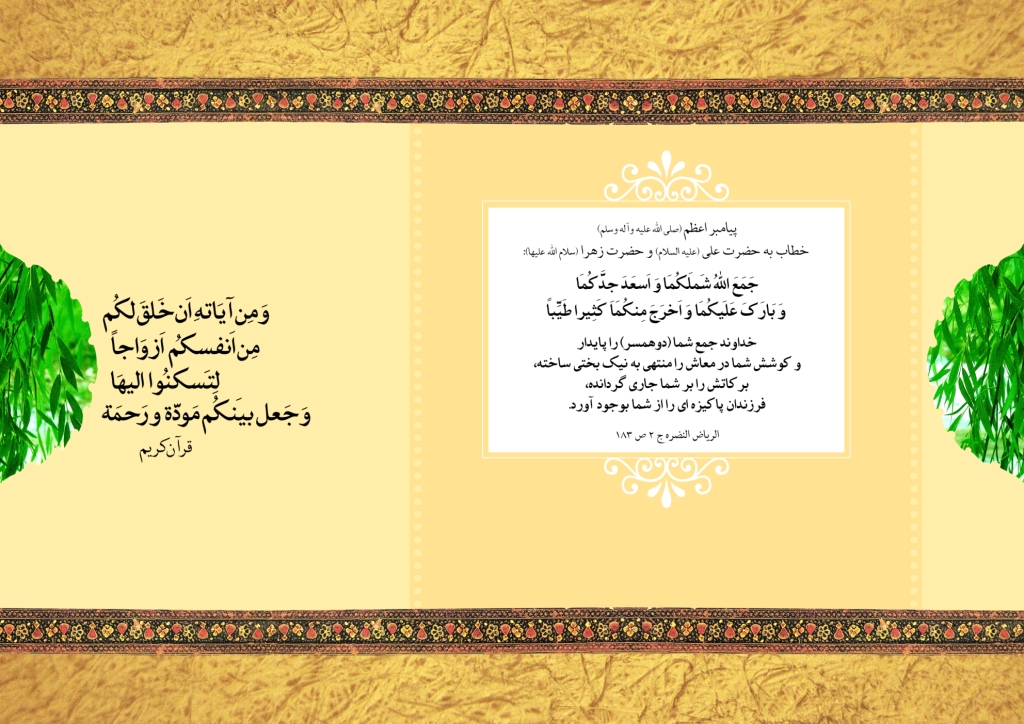 پیامبر اعظم (صلی الله علیه و آله وسلم)
خطاب به حضرت علی (علیه السلام) و حضرت زهرا (سلام الله علیها):
جَمَعَ اللهُ شَمَلَكُمَا وَ اَسعَدَ جدَّكُمَا
وَ بَارَكَ عَلَيكُمَا وَ اَخرَجَ مِنكُمَا كَثِيرا طَيِّباً
خداوند جمع شما (دوهمسر) را پایدار
و کوشش شما در معاش را منتهی به نیک بختی ساخته،
برکاتش را بر شما جاری گردانده،
فرزندان پاکیزه ای را از شما بوجود آورد.
الریاض النضره ج ۲ ص ۱۸۳
وَمِن آيَاتهِ اَن خَلقَ لكُم
مِن اَنفسكُم اَزوَاجاً
لِتَسكنُوا اليهَا
وَ جَعل بينَكُم مَودّة ورَحمَة
قرآن کریم